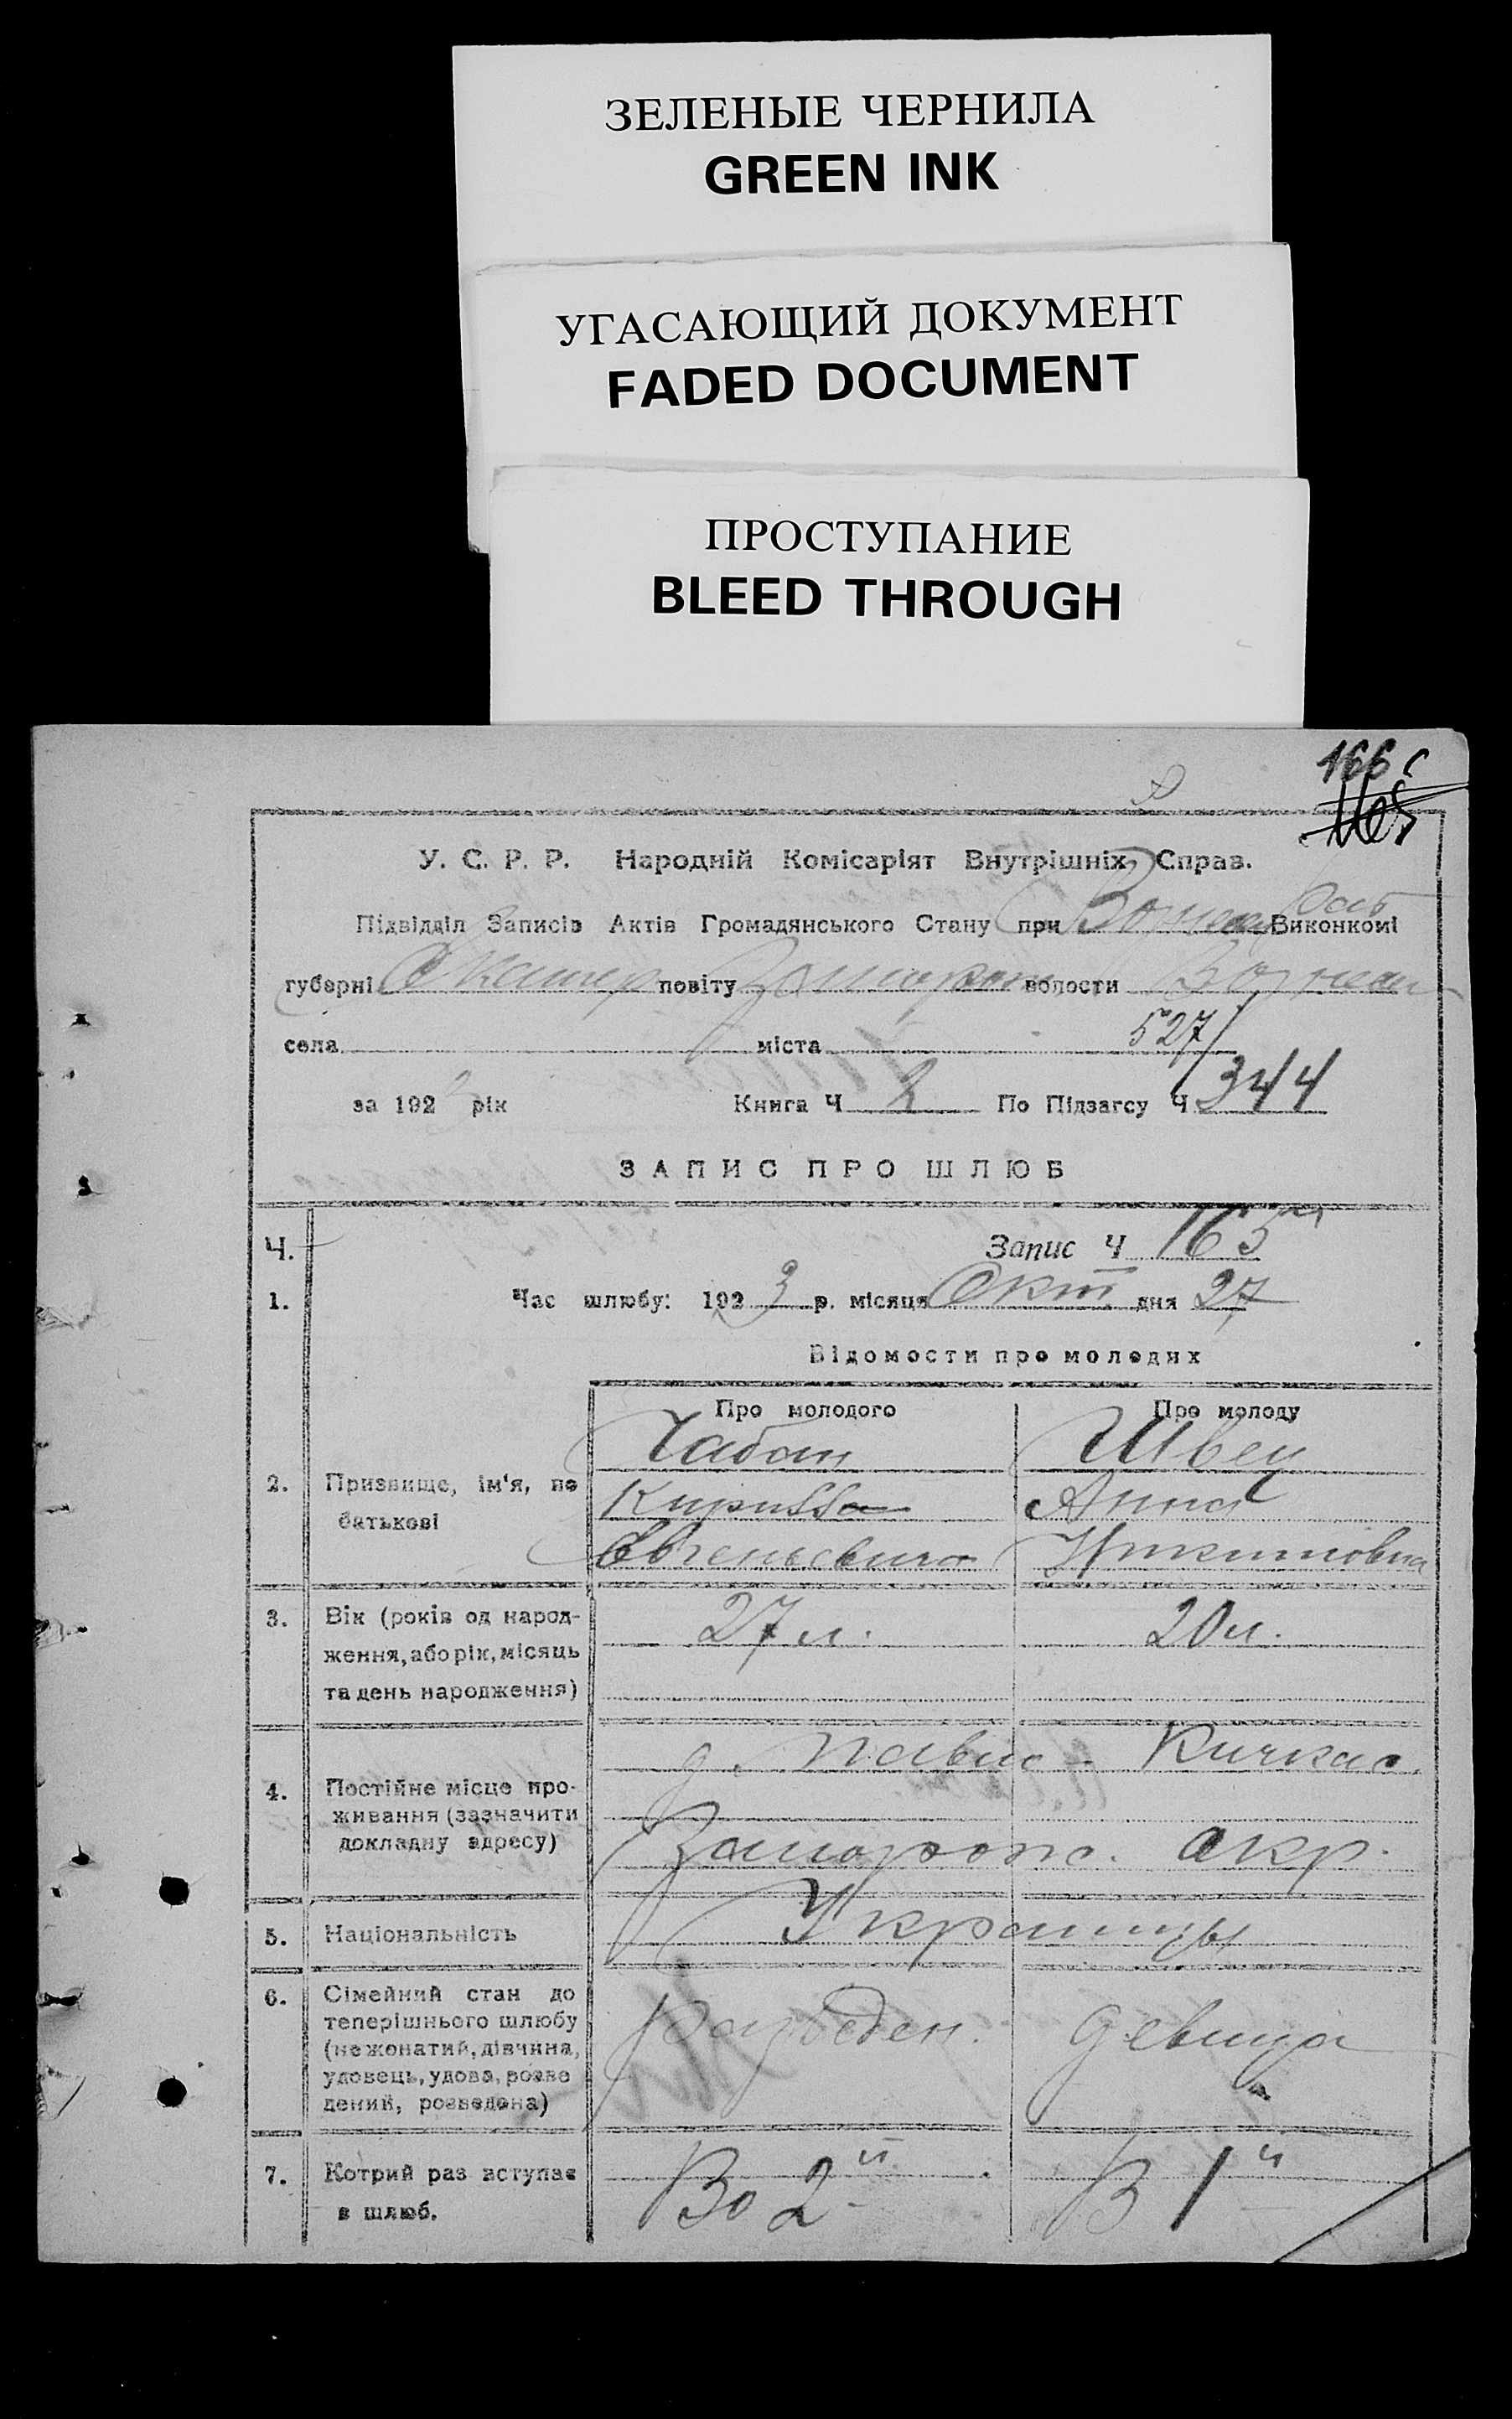 ЗЕЛЕНЫЕ ЧЕРНИЛА
GREEN INK
УГАСАЮЩИЙ ДОКУМЕНТ
FADED DOCUMENT
ПРОСТУПАНИЕ
BLEED THROUGH
166
165
У. С. Р. Р. Народній Комісаріят Внутрішніх Справ.
Підвідділ Записів Актів Громадянського Стану при Виконкомі
губерні повіту волости
села міста 527/
за 192 рік Книга Ч 2 По Підзагсу Ч 344
ЗАПИС ПРО ШЛЮБ
Ч. Запис Ч 165
1. Час шлюбу: 192 3 р. місяця Окт дня 27
Відомости про молодих
Про молодого Про молоду
Чабан Швец
2. Призвище, ім'я, по батькові
Кирилла Анна
Евгеньевича Никитовна
3. Вік (років од народ-
ження, або рік, місяць
та день народження)
27 л. 20 л.
4. Постійне місце про-
живання (зазначити
докладну адресу)
д. Павло - Кичкас.
Запорожс. окр.
5. Національність Украинцы
6. Сімейний стан до
теперішнього шлюбу
(нежонатий, дівчина,
удовець, удова, розве
дений, розведена)
Разведен. девица
7. Котрий раз вступає
в шлюб.
Во 2й В 1й